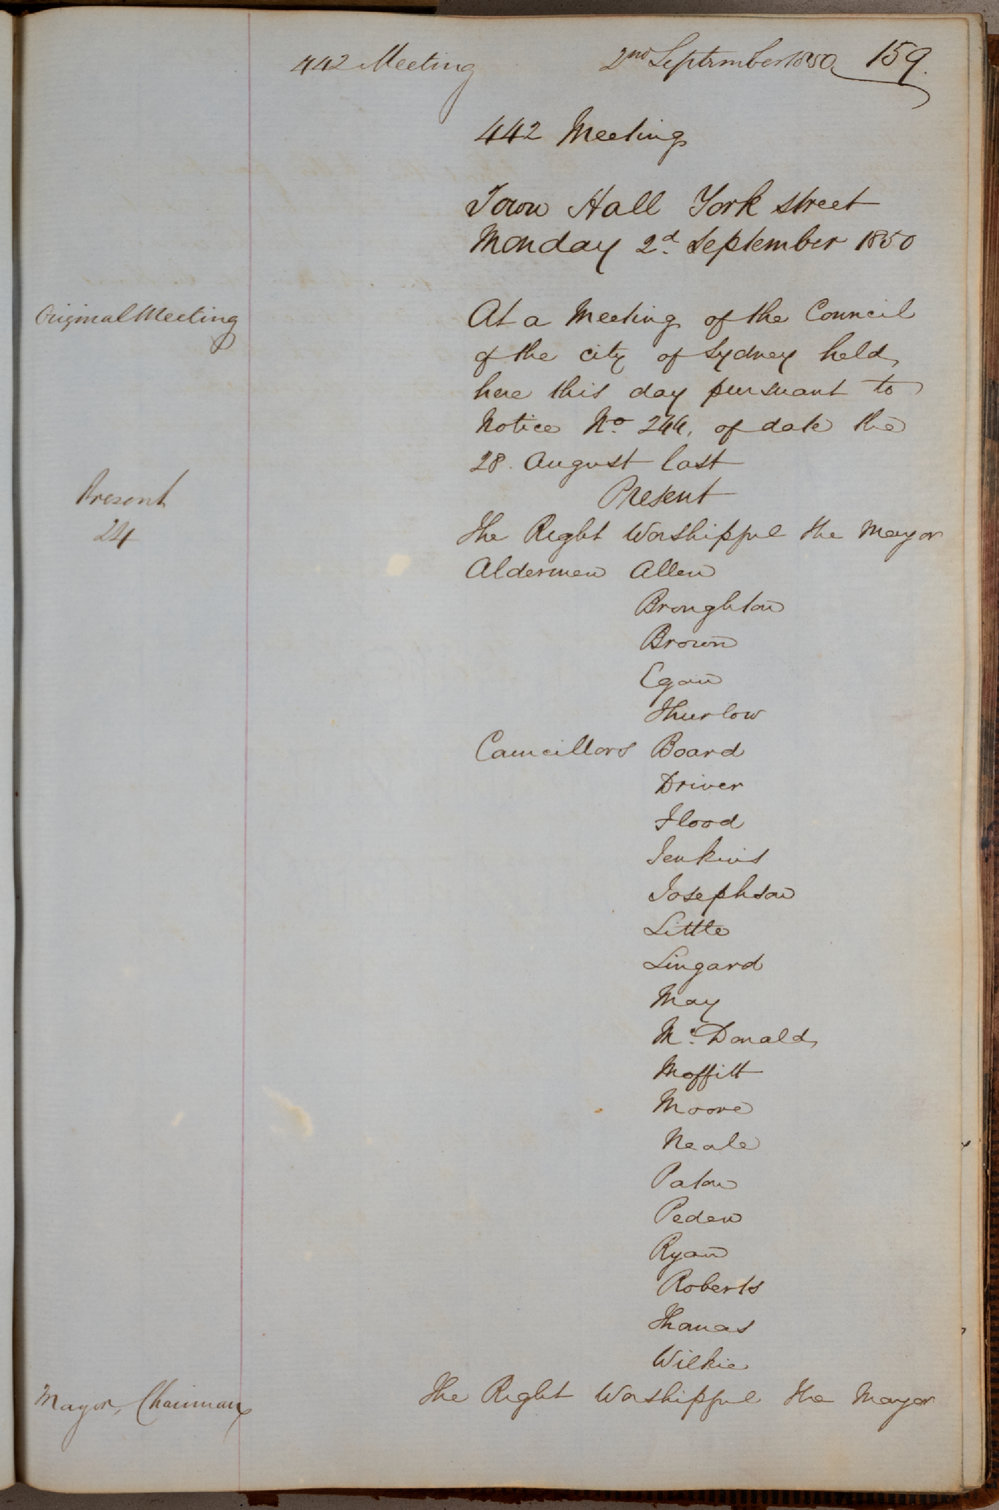 442 Meeting 2nd September 1850 159.
442 Meeting
Town Hall York street
Monday 2d. September 1850
Original Meeting
At a Meeting of the Council
of the city of Sydney held
here this day pursuant to
Notice No. 244, of date the
28. August last
Present
24
Present
The Right Worshipful the Mayor
Aldermen Allen
Broughton
Brown
Egan
Thurlow
Councillors Board
Driver
Flood
Jenkins
Josephson
Little
Lingard
May
Mc. Donald
Moffitt
Moore
Neale
Paton
Peden
Ryan
Roberts
Thomas
Wilkie
Mayor, Chairman
The Right Worshipful the Mayor